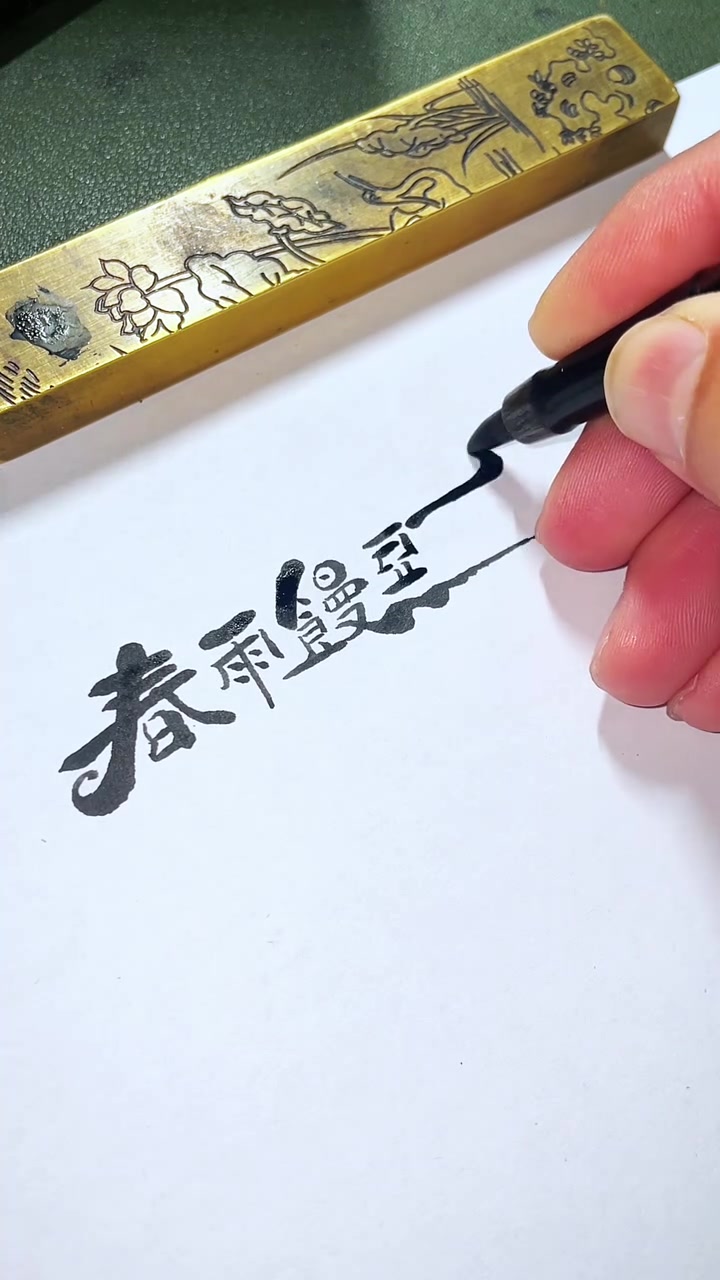 春雨饅豆